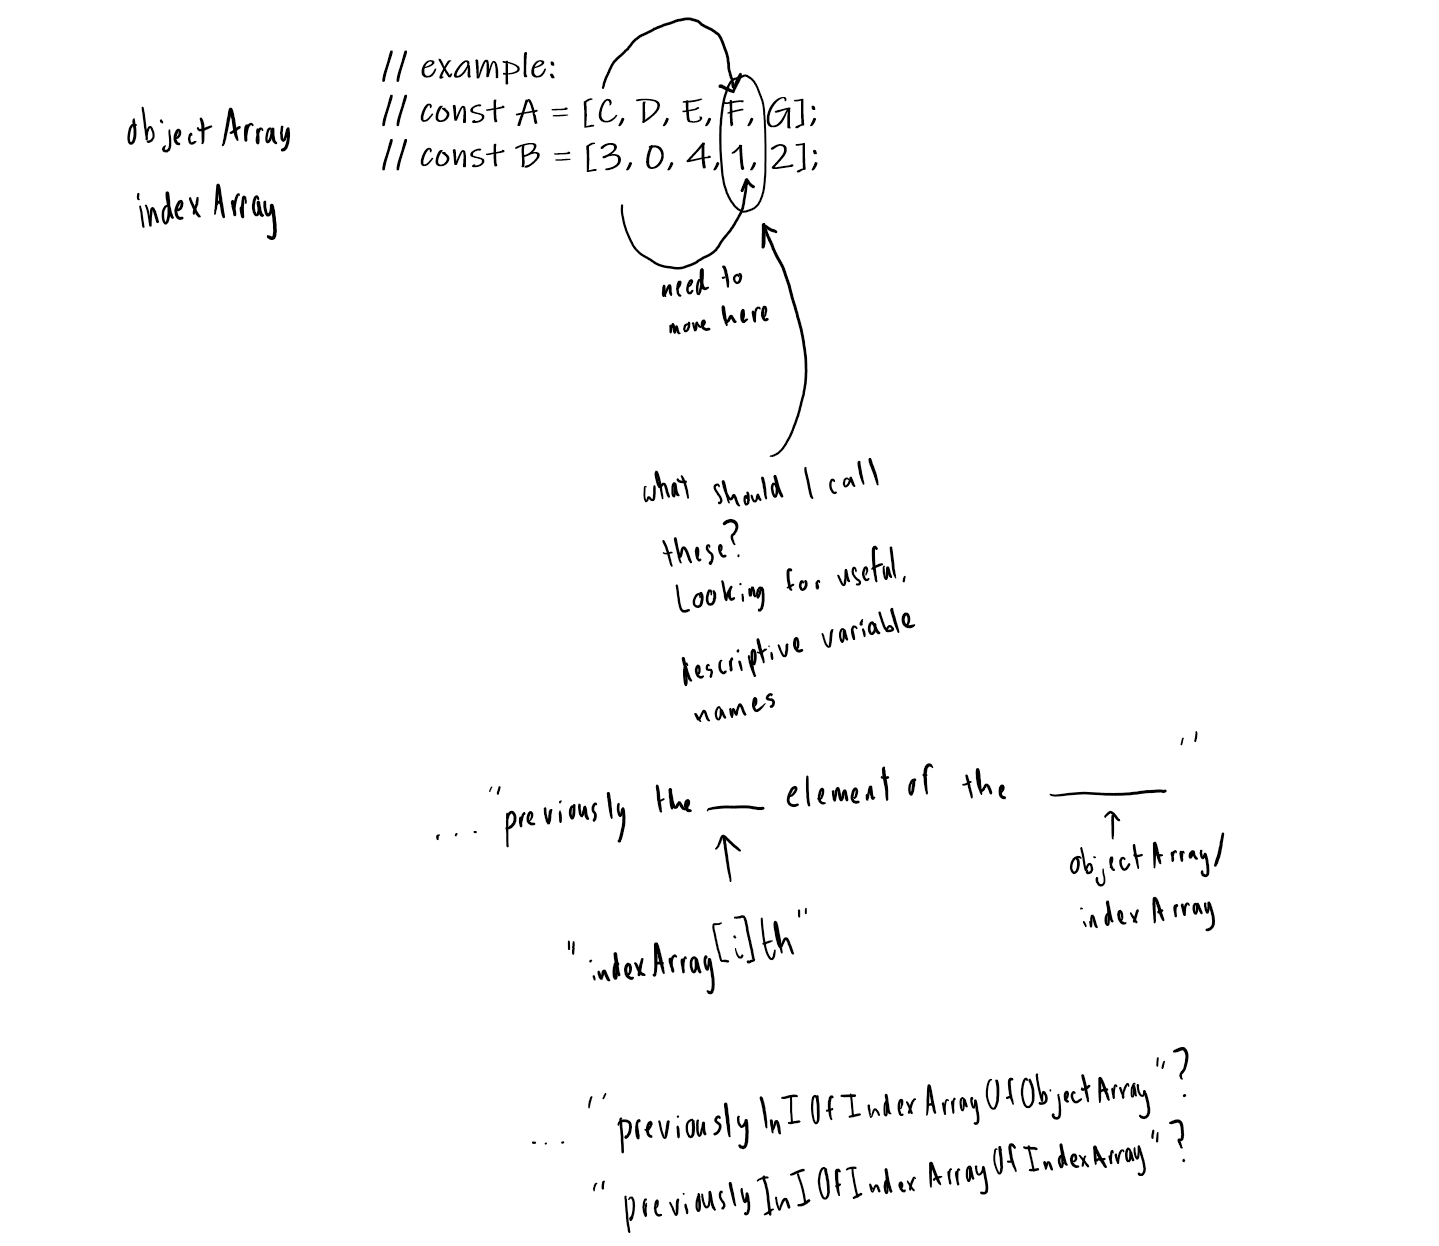 // example:
objectArray
// const A = [C, D, E, F, G];
// const B = [3, 0, 4, 1, 2];
indexArray
need to
move here
what should I call
these?
Looking for useful,
descriptive variable
names
... "previously the ___ element of the ______"
objectArray/
indexArray
"indexArray[i]th"
... "previouslyInIOfIndexArrayOfObjectArray"?
"previouslyInIOfIndexArrayOfIndexArray"?